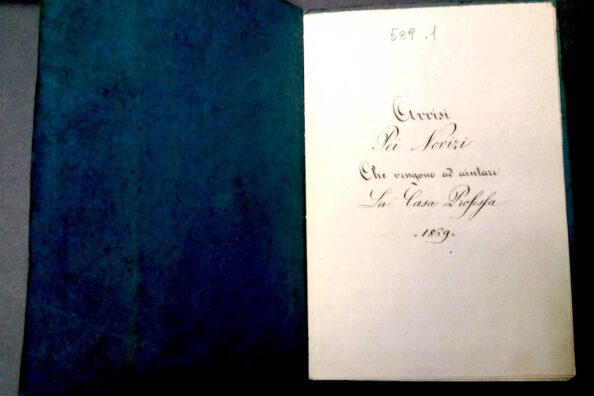 589.1
Avvisi
Pei Novizi
Che vengono ad aiutare
La Casa Professa
.1869.